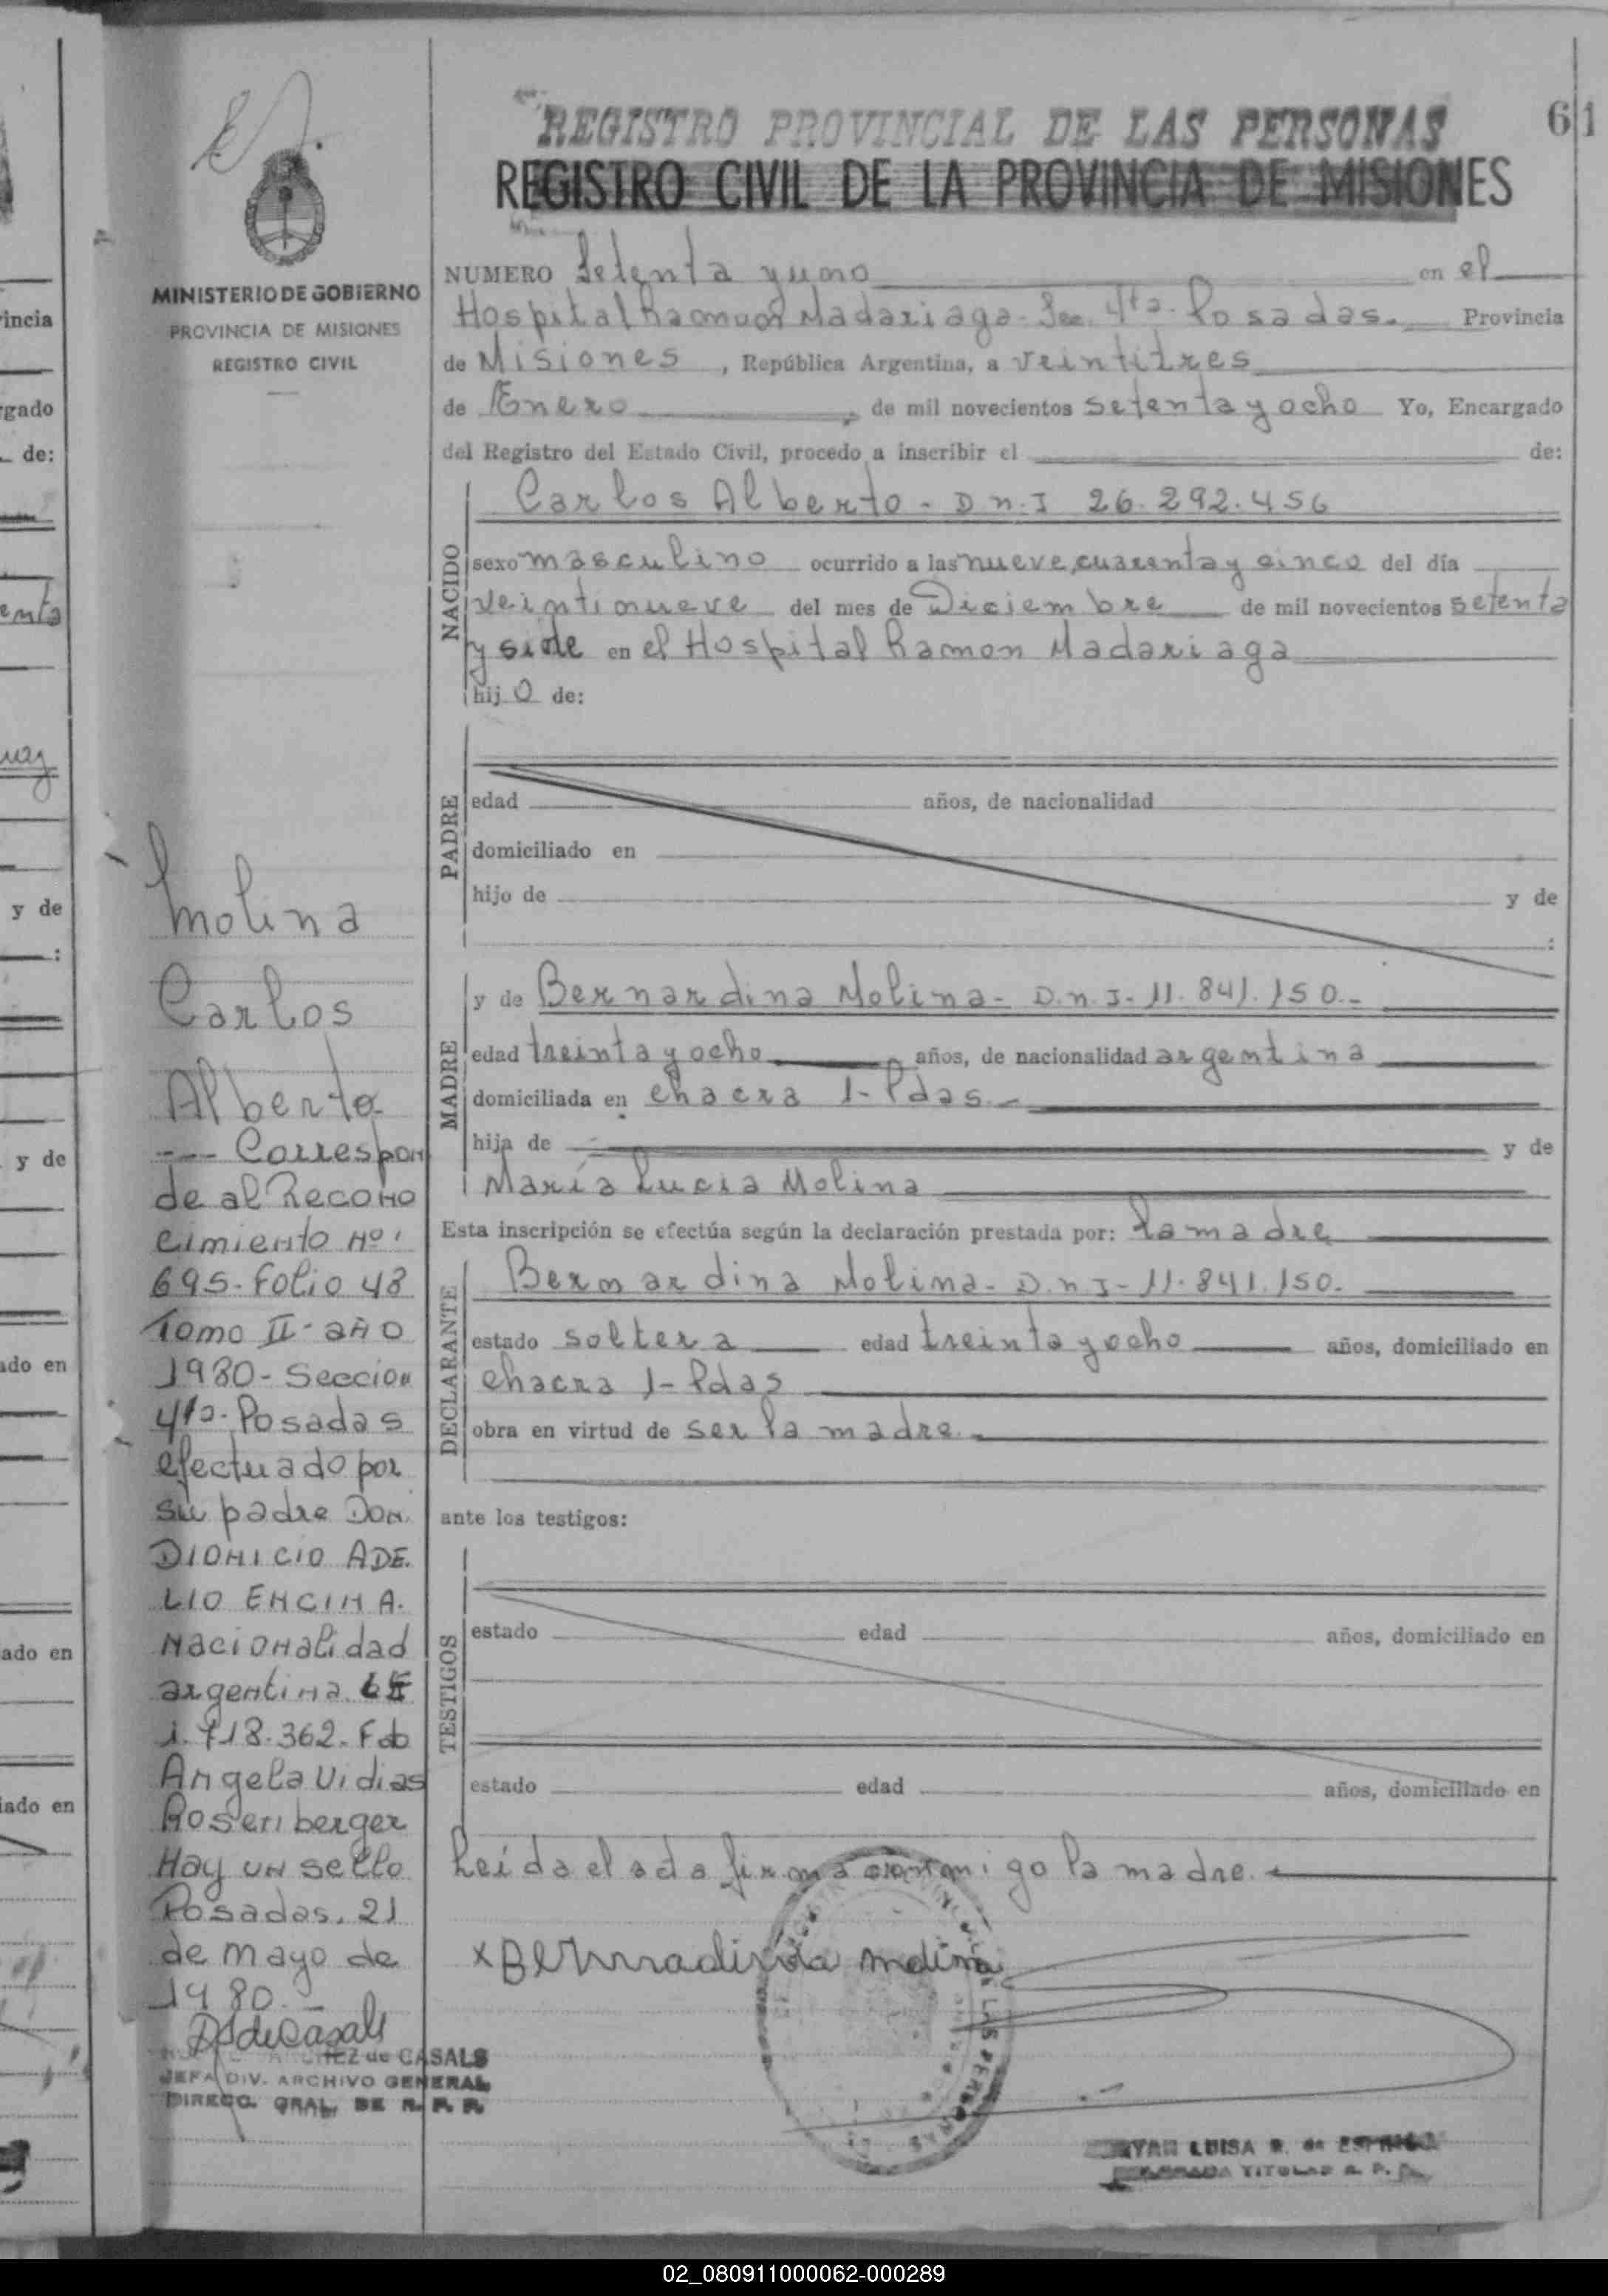 61
REGISTRO PROVINCIAL DE LAS PERSONAS
REGISTRO CIVIL DE LA PROVINCIA DE MISIONES
MINISTERIO DE GOBIERNO
PROVINCIA DE MISIONES
REGISTRO CIVIL
NUMERO Setenta y uno en el
Hospital Ramon Madariaga - Sec. 4ta - Posadas. Provincia
de Misiones, República Argentina, a veintitres
de Enero, de mil novecientos setenta y ocho Yo, Encargado
del Registro del Estado Civil, procedo a inscribir el de:
NACIDO
Carlos Alberto - D.n.I 26.292.456
sexo masculino ocurrido a las nueve, cuarenta y cinco del día
veintinueve del mes de Diciembre de mil novecientos setenta
y siete en el Hospital Ramon Madariaga
hijo de:
PADRE
edad años, de nacionalidad
domiciliado en
hijo de y de
:
MADRE
y de Bernardina Molina - D.n.I - 11.841.150.-
edad treinta y ocho años, de nacionalidad argentina
domiciliada en chacra 1 - Pdas.-
hija de y de
María Lucia Molina
Esta inscripción se efectúa según la declaración prestada por: la madre
DECLARANTE
Bernardina Molina - D.n.I - 11.841.150.
estado soltera edad treinta y ocho años, domiciliado en
chacra 1 - Pdas
obra en virtud de ser la madre.
ante los testigos:
TESTIGOS
estado edad años, domiciliado en
estado edad años, domiciliado en
Leida el acta firma conmigo la madre.
x Bernradinda molina
LUISA R. de
TITULAR R. P.
Molina
Carlos
Alberto
--- Correspon
de al Recono
cimiento Nº
695 - Folio 48
Tomo II - año
1980 - Seccion
4ta - Posadas
efectuado por
su padre Don.
DIONICIO ADE.
LIO ENCINA.
Nacionalidad
argentina LE
1.718.362. Fdo
Angela Vidias
Rosenberger
Hay un sello
Posadas, 21
de mayo de
1980.-
de CASALS
JEFA DIV. ARCHIVO GENERAL
DIRECC. GRAL. DE R. P. P.
incia
gado
de:
enta
uay
y de
:
y de
ado en
ado en
iado en
02_080911000062-000289